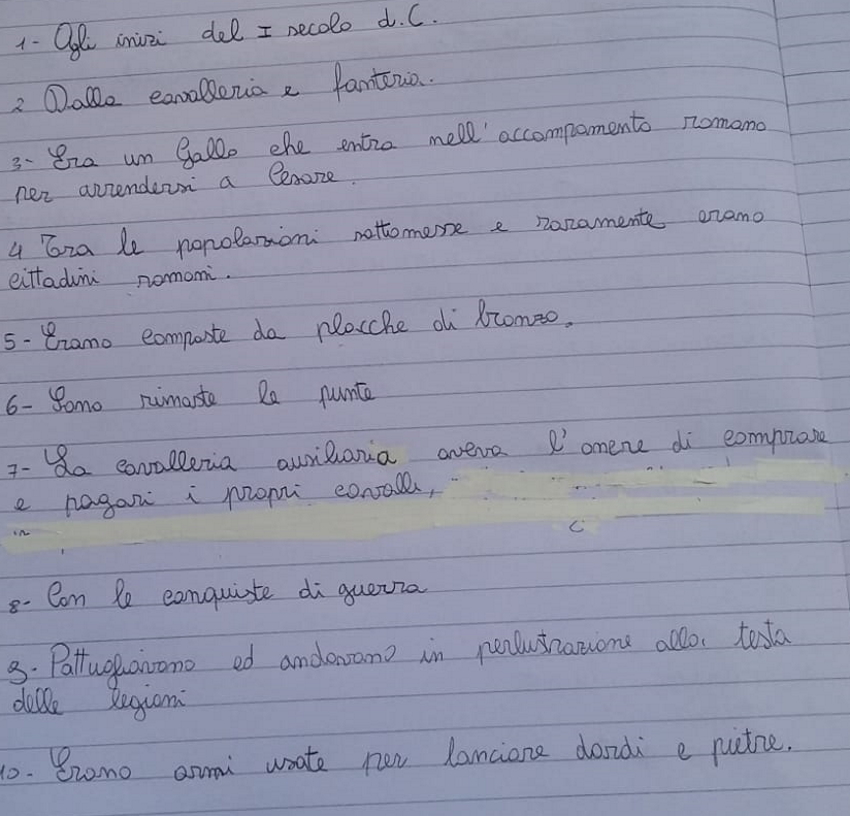 1- Agli inizi del I secolo d.C.
2 Dalla cavalleria e fanteria.
3- Era un Gallo che entra nell'accampamento romano
per arrendersi a Cesare.
4 Tra le popolazioni sottomesse e raramente erano
cittadini romani.
5- Erano composte da placche di bronzo.
6- Sono rimaste le punte
7- La cavalleria ausiliaria aveva l'onere di comprare
e pagari i propri cavalli,
8- Con le conquiste di guerra
9- Pattugliavano ed andavano in perlustrazione alla testa
delle legioni
10- Erano armi usate per lanciare dardi e pietre.